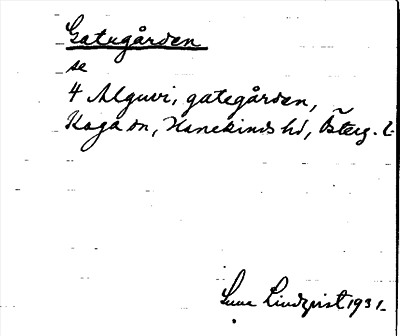 Gatugården
se
4 Alguvi, gategården,
Kaga sn, Hanekinds hd, Österg. l.
Sune Lindqvist 1931